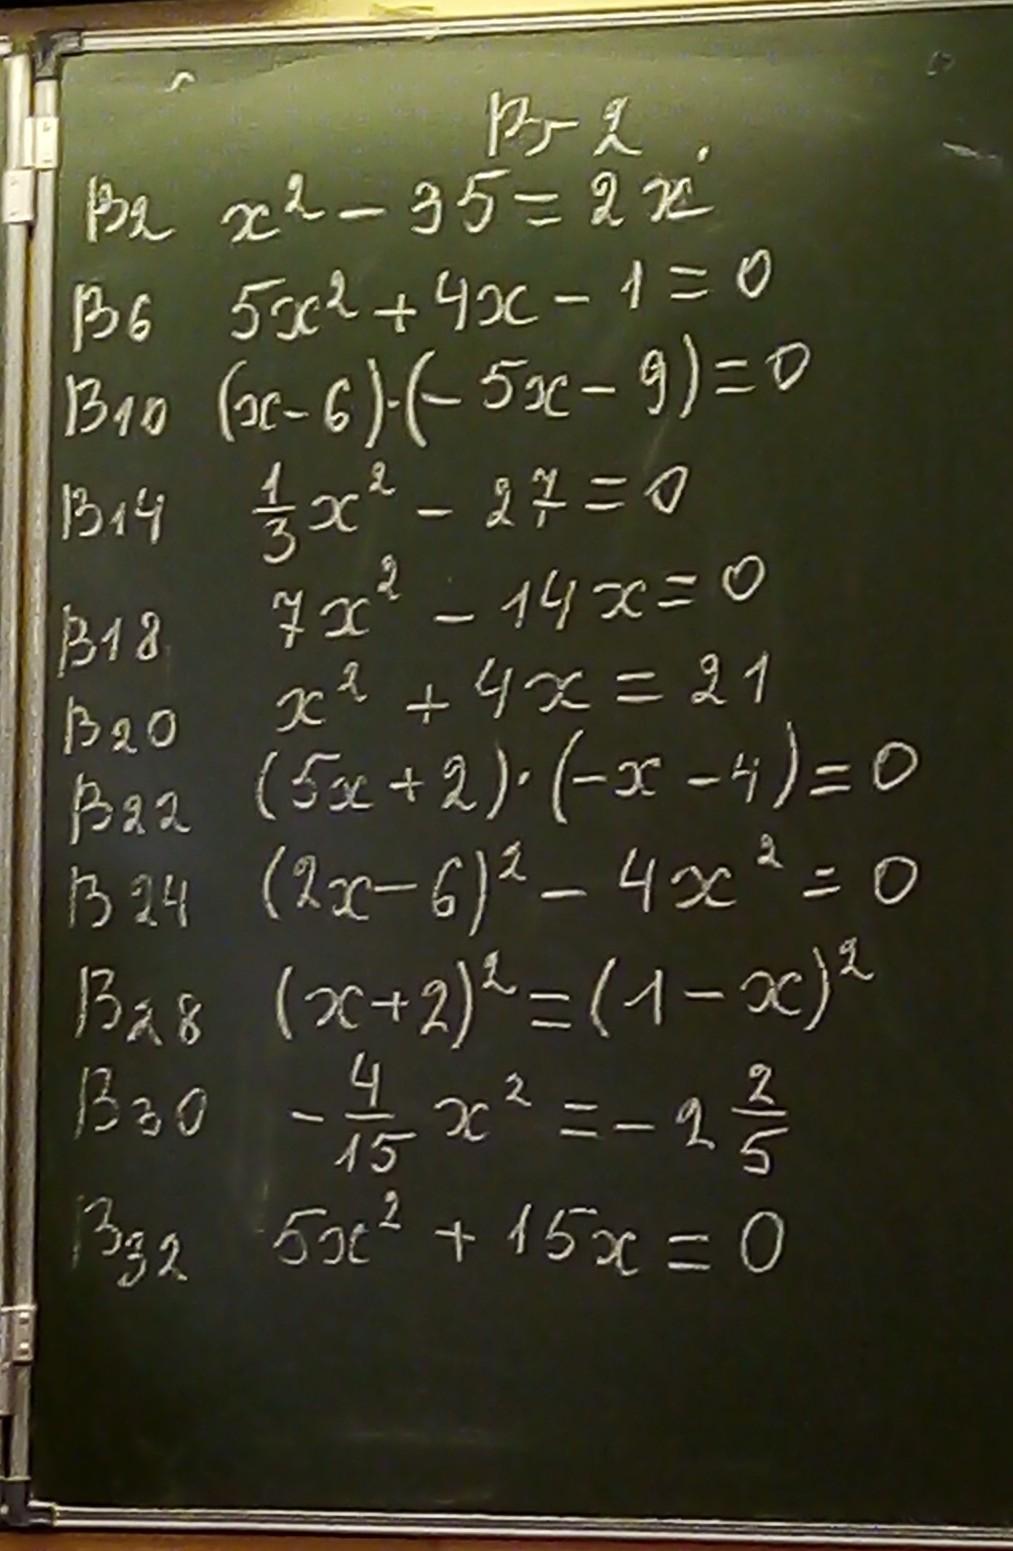 В-2.
В2 x² - 35 = 2x
В6 5x² + 4x - 1 = 0
В10 (x-6)·(-5x-9)=0
В14 1/3 x² - 27 = 0
В18 7x² - 14x = 0
В20 x² + 4x = 21
В22 (5x+2)·(-x-4)=0
В24 (2x-6)² - 4x² = 0
В28 (x+2)² = (1-x)²
В30 -4/15 x² = -2 2/5
В32 5x² + 15x = 0